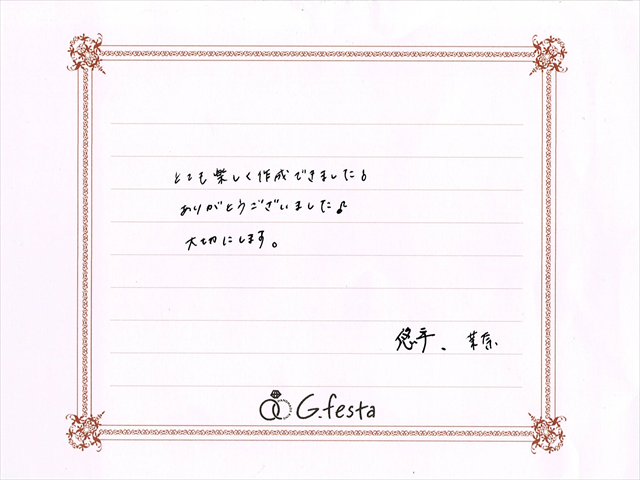 とても楽しく作成できました♪
ありがとうございました♪
大切にします。
悠平、菜奈
G.festa